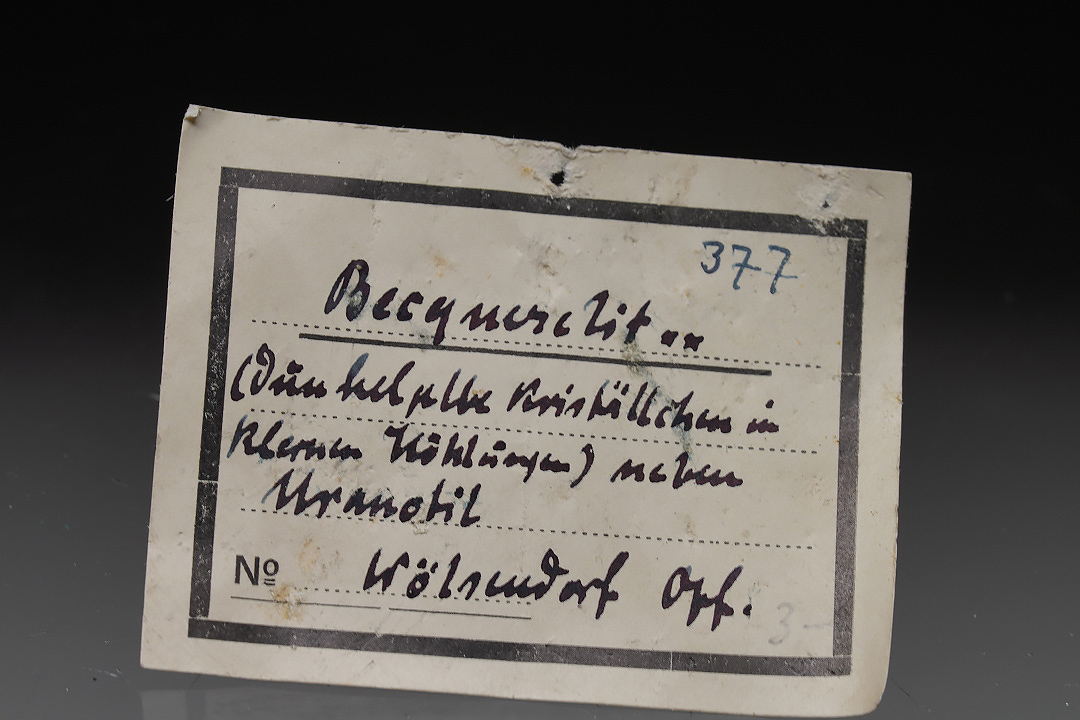 377
Becquerelit..
(Dunkelgelbe Kriställchen in
kleinen Höhlungen) neben
Uranotil
Nº Wölsendorf Opf.
3-